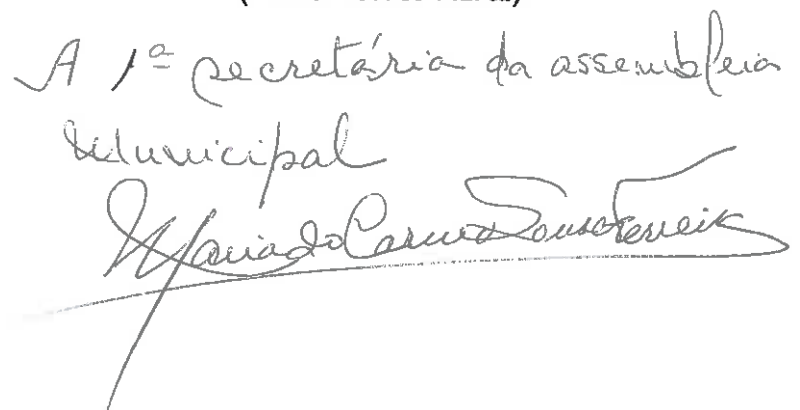 A 1ª secretária da assembleia
Municipal
Maria do Carmo Sousa Ferreira